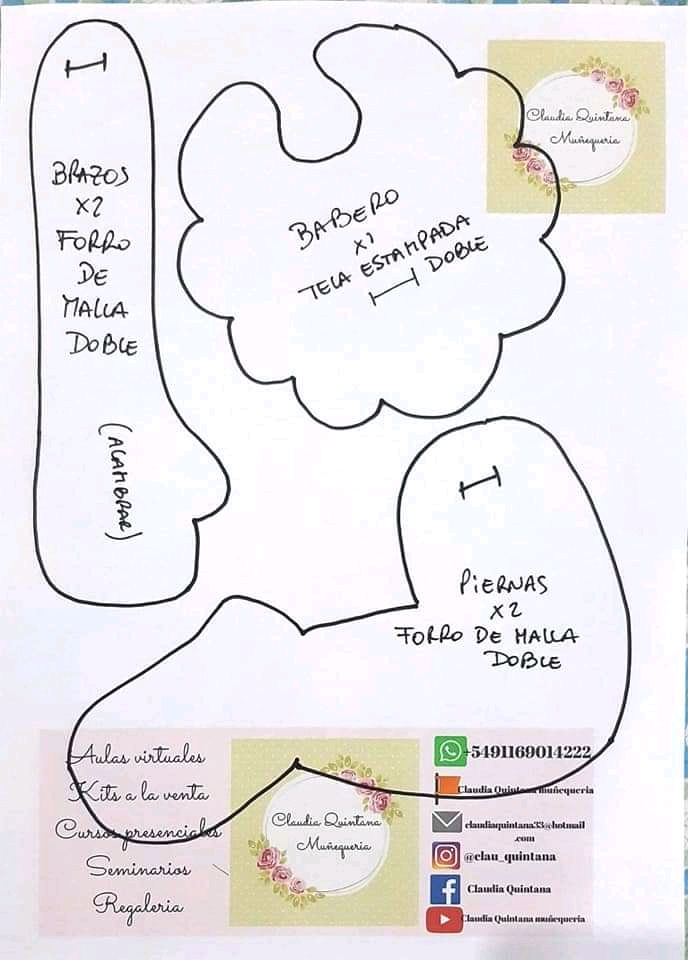 BRAZOS
X2
FORRO
DE
MALLA
DOBLE
(ALAMBRAR)
BABERO
X1
TELA ESTAMPADA
DOBLE
Claudia Quintana
Muñequeria
PIERNAS
X2
FORRO DE MALLA
DOBLE
Aulas virtuales
Kits a la venta
Cursos presenciales
Seminarios
Regaleria
Claudia Quintana
Muñequeria
+5491169014222
Claudia Quintana muñequeria
claudiaquintana33@hotmail
.com
@clau_quintana
Claudia Quintana
Claudia Quintana muñequeria